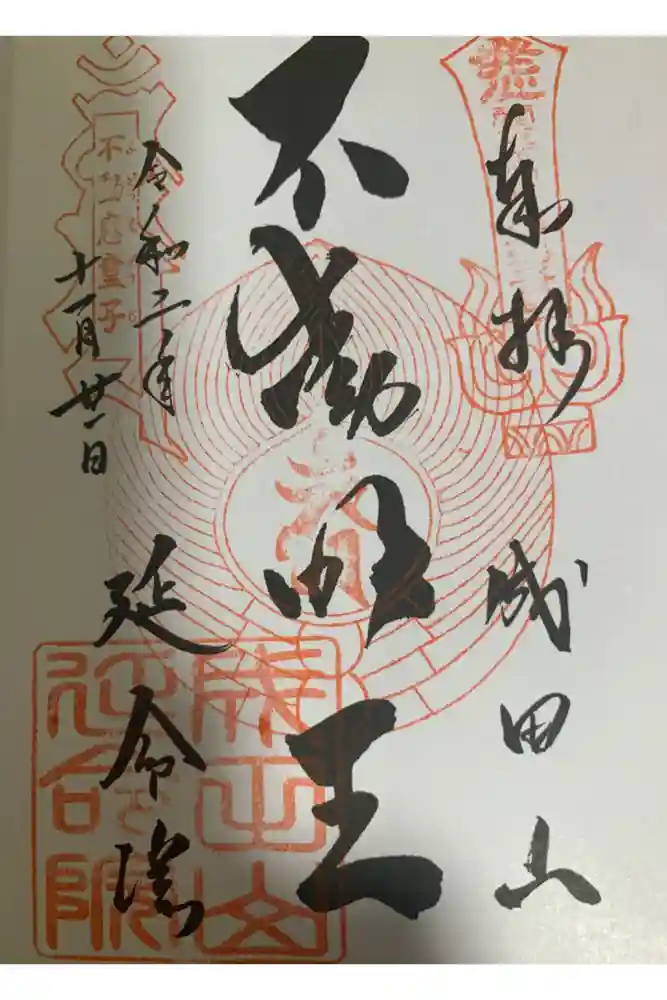 奉拝
成田山
不動明王
令和二年
十一月廿一日
延命院
不動
童子
成田山
延命院